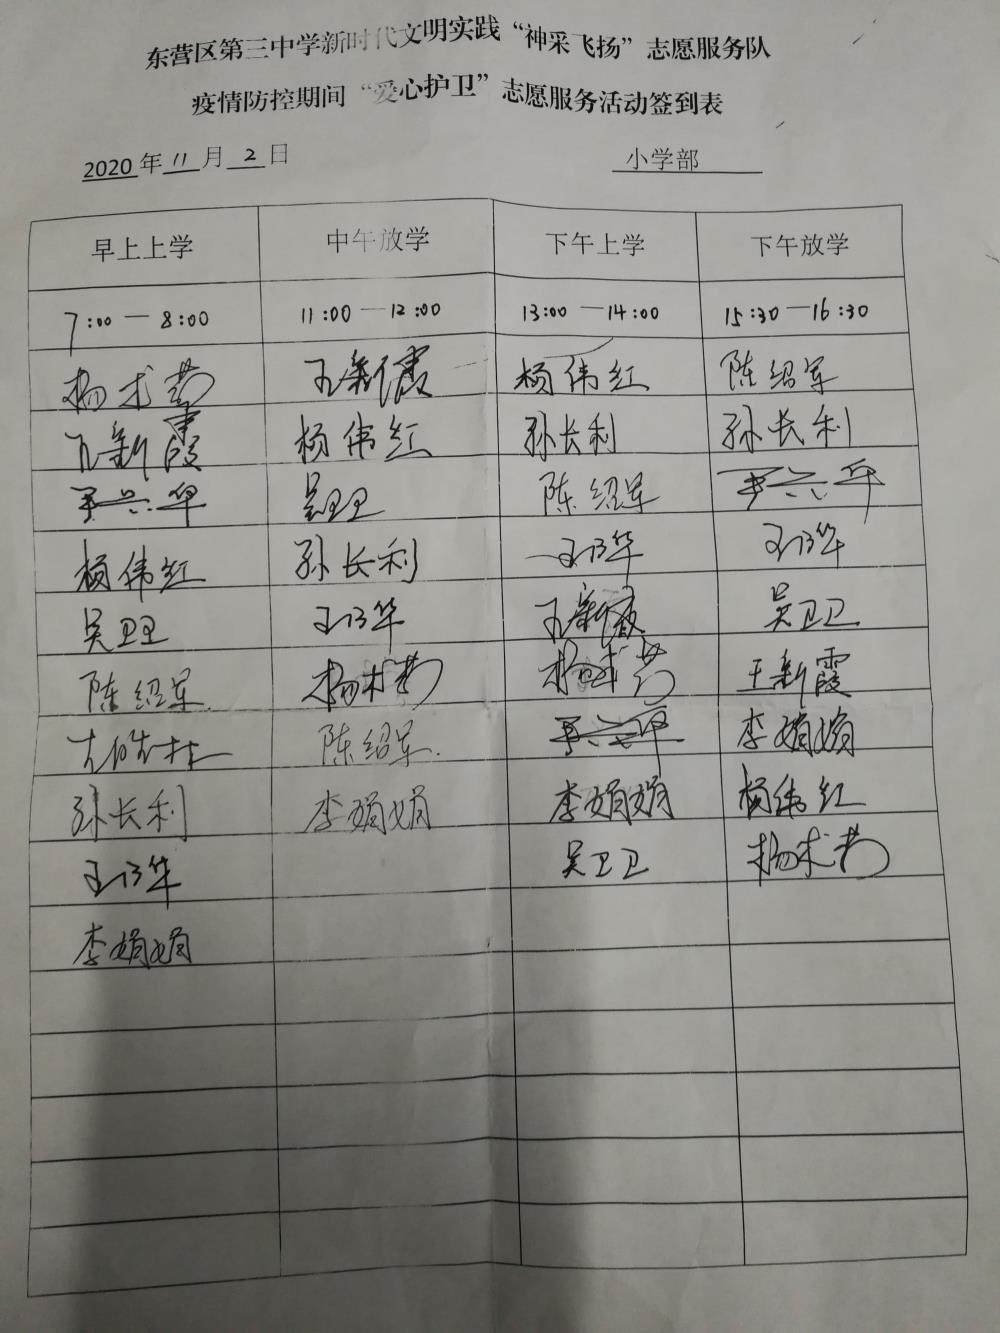 东营区第三中学新时代文明实践“神采飞扬”志愿服务队
疫情防控期间“爱心护卫”志愿服务活动签到表
2020年11月2日 小学部
早上上学 中午放学 下午上学 下午放学
7:00—8:00 11:00—12:00 13:00—14:00 15:30—16:30
杨术芳 王新霞 杨伟红 陈绍军
王新霞 杨伟红 孙长利 孙长利
吴卫卫 陈绍军
杨伟红 孙长利 王乃华 王乃华
吴卫卫 王乃华 王新霞 吴卫卫
陈绍军 杨术芳 杨术芳 王新霞
陈绍军 李娟娟
孙长利 李娟娟 李娟娟 杨伟红
王乃华 吴卫卫 杨术芳
李娟娟